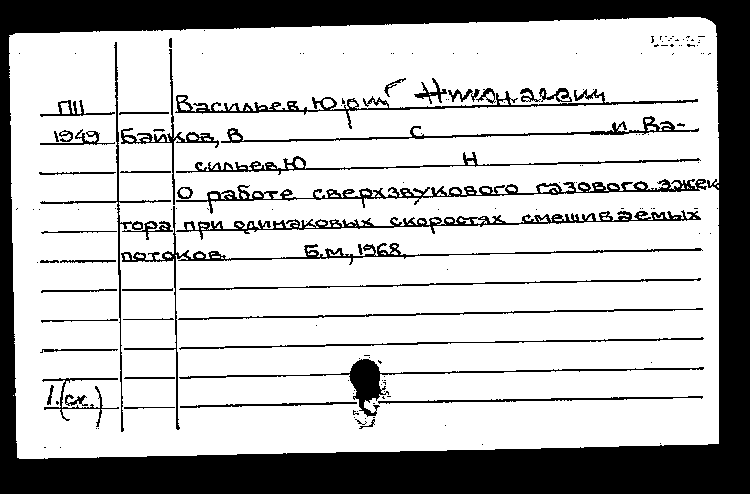 ПII Васильев, Юрий Николаевич
1949 Байков, В С и Ва-
сильев, Ю Н
О работе сверхзвукового газового эжек
тора при одинаковых скоростях смешиваемых
потоков. Б.м., 1968.
1.(ск.)